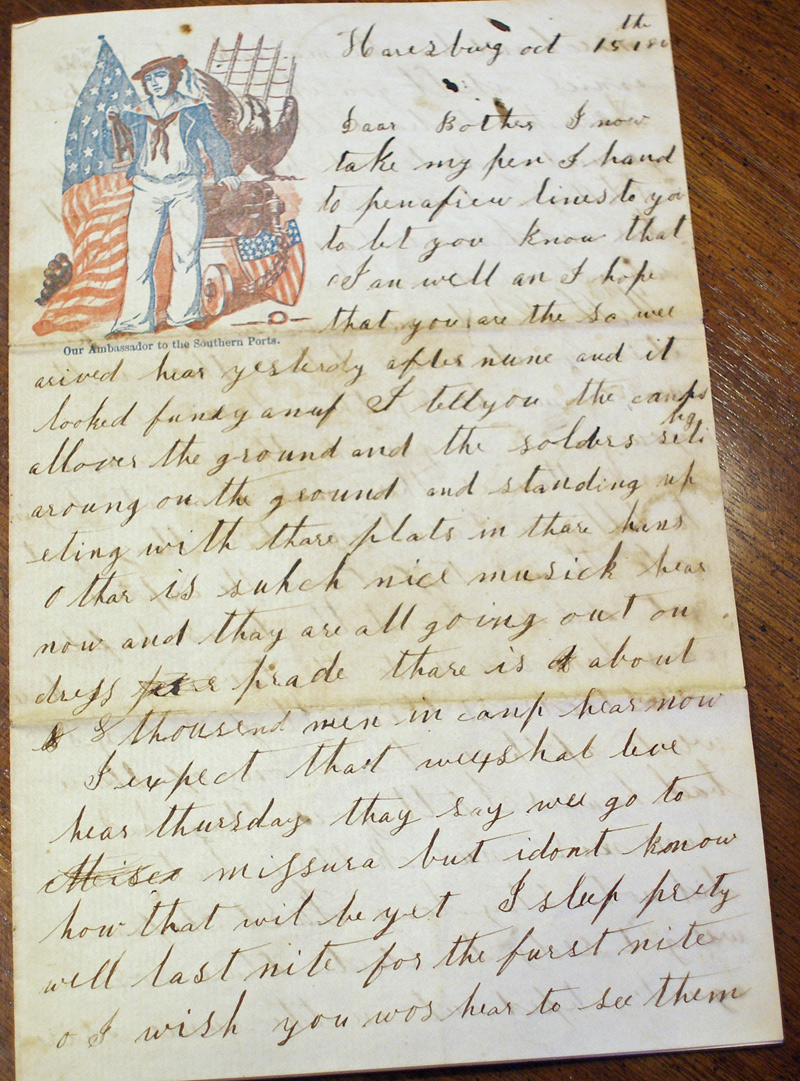 Haresburg oct 15th 186
Daar Bother I now
take my pen I hand
to penafieu lines to you
to let you know that
I an well an I hope
that you are the sa wee
Our Ambassador to the Southern Ports.
arived hear yesterdy after nune and it
looked funey anuf I tell you the camps
allover the ground and the solders seting
aroung on the ground and standing up
eting with thare plats in thare hans
O thar is suhch nice musick hear
now and thay are all going out on
dress prade thare is about
8 thousend men in canp hear now
I expect that wee shal leve
hear thursday thay say wee go to
missura but i dont know
how that wil be yet I sleep prety
well last nite for the furst nite
o I wish you wos hear to see them